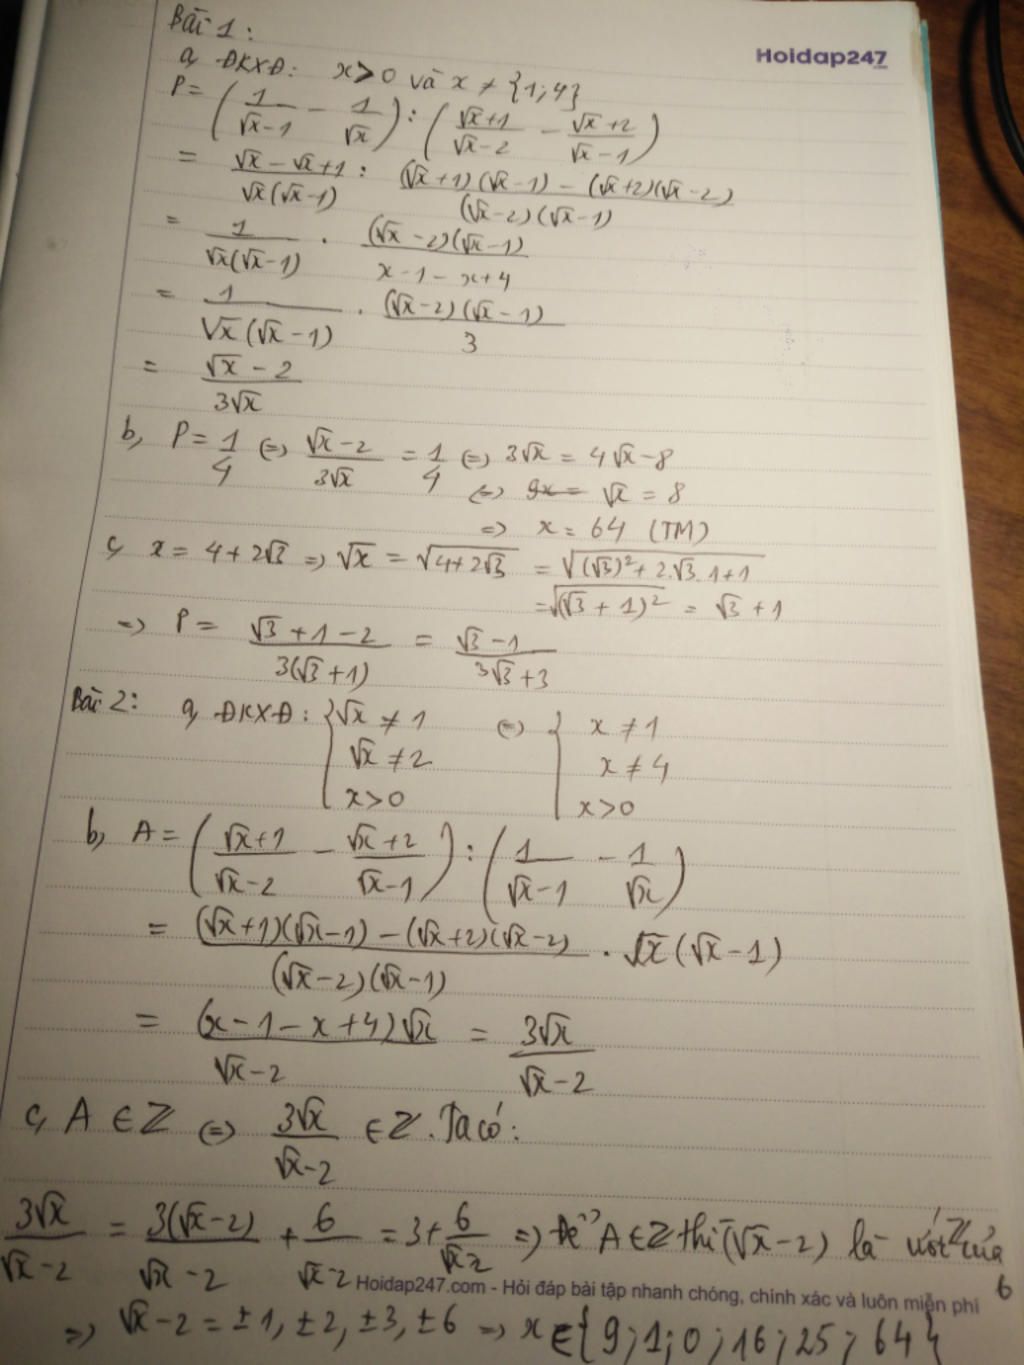 Bài 1:
Hoidap247
a, ĐKXĐ: x>0 và x ≠ {1;4}
P= (1/(√x-1) - 1/√x) : ((√x+1)/(√x-2) - (√x+2)/(√x-1))
= (√x-√x+1)/(√x(√x-1)) : ((√x+1)(√x-1) - (√x+2)(√x-2))/((√x-2)(√x-1))
= 1/(√x(√x-1)) . ((√x-2)(√x-1))/(x-1-x+4)
= 1/(√x(√x-1)) . ((√x-2)(√x-1))/3
= (√x-2)/(3√x)
b, P= 1/4 (=) (√x-2)/(3√x) = 1/4 (=) 3√x = 4√x-8
(=) 9x = √x = 8
=) x = 64 (TM)
c, x = 4+2√3 =) √x = √(4+2√3) = √((√3)²+2.√3.1+1)
= √((√3+1)²) = √3+1
=) P = (√3+1-2)/(3(√3+1)) = (√3-1)/(3√3+3)
Bài 2: a, ĐKXĐ: { √x ≠ 1 (=) { x ≠ 1
√x ≠ 2 x ≠ 4
x>0 x>0
b, A = ((√x+1)/(√x-2) - (√x+2)/(√x-1)) : (1/(√x-1) - 1/√x)
= ((√x+1)(√x-1) - (√x+2)(√x-2))/((√x-2)(√x-1)) . √x(√x-1)
= ((x-1-x+4)√x)/(√x-2) = 3√x/(√x-2)
c, A ∈ Z (=) 3√x/(√x-2) ∈ Z. Ta có:
3√x/(√x-2) = 3(√x-2)/(√x-2) + 6/(√x-2) = 3+ 6/(√x-2) =) Để A ∈ Z thì (√x-2) là ước Z của 6
Hoidap247.com - Hỏi đáp bài tập nhanh chóng, chính xác và luôn miễn phí
=) √x-2 = ±1, ±2, ±3, ±6 =) x ∈ {9;1;0;16;25;64}